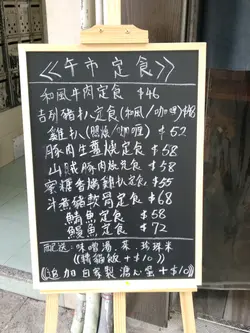 《午市定食》
和風牛肉定食 $46
吉列豬扒定食(和風/咖喱)$48
雞扒(照燒/咖喱) $52
豚肉生薑燒定食 $58
山賊豚肉燒定食 $58
蜜糖香燒雞扒定食 $55
汁煮豬軟骨定食 $68
鯖魚定食 $58
鰻魚定食 $72
配送:味噌湯、菜、珍珠米
(轉豬飯 +$10)
(追加自家製溏心蛋+$10)